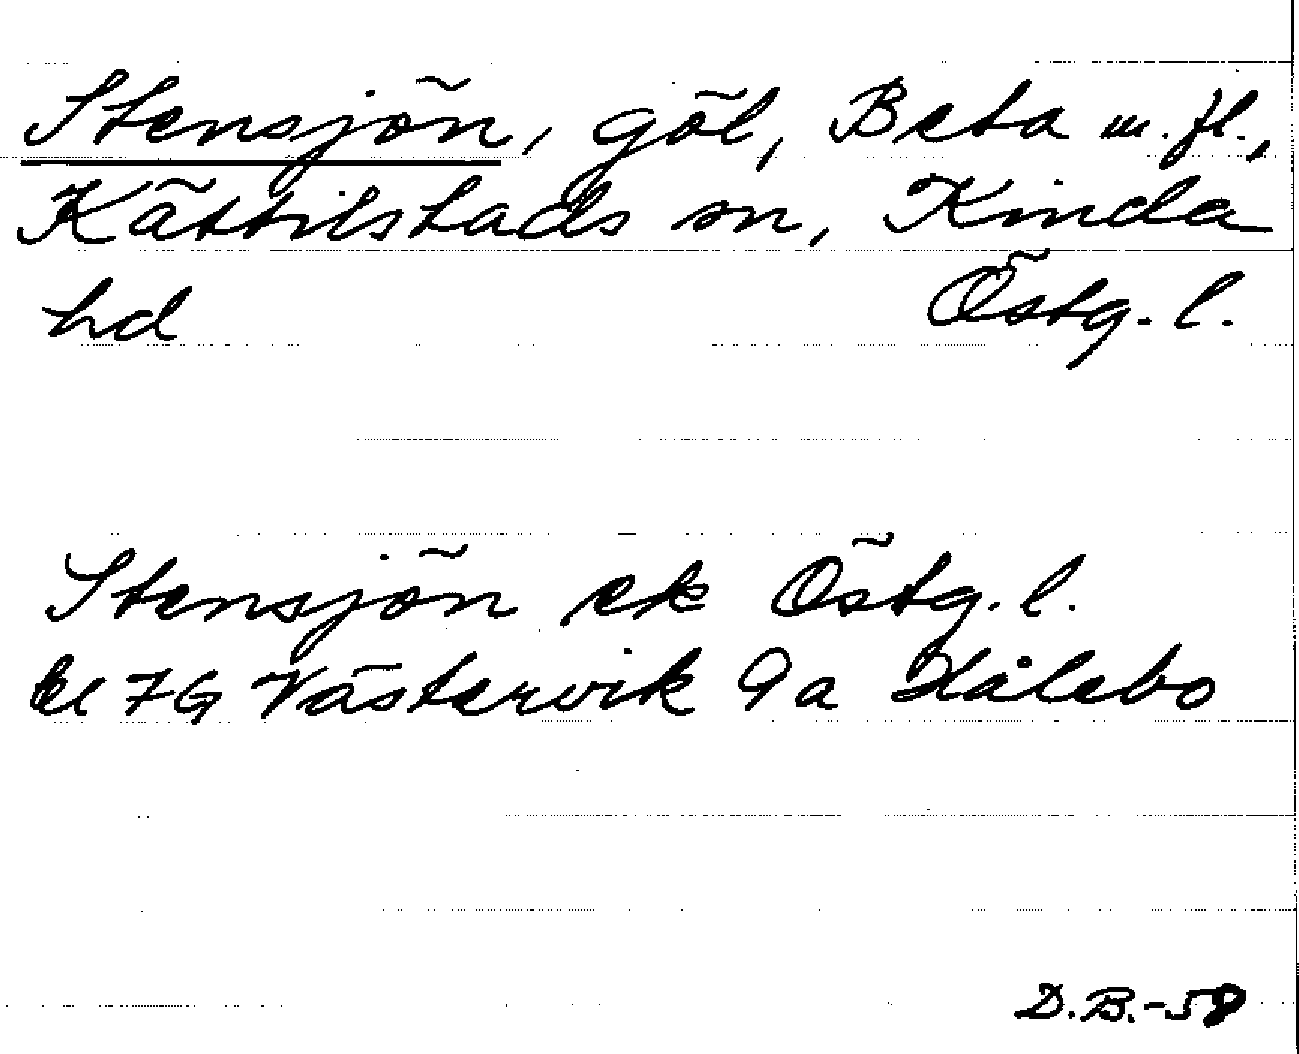 Stensjön, göl, Beta m.fl.,
Kättilstads sn, Kinda
hd Östg. l.
Stensjön ek Östg. l.
bl 7G Västervik 9a Kålebo
D.B.-58